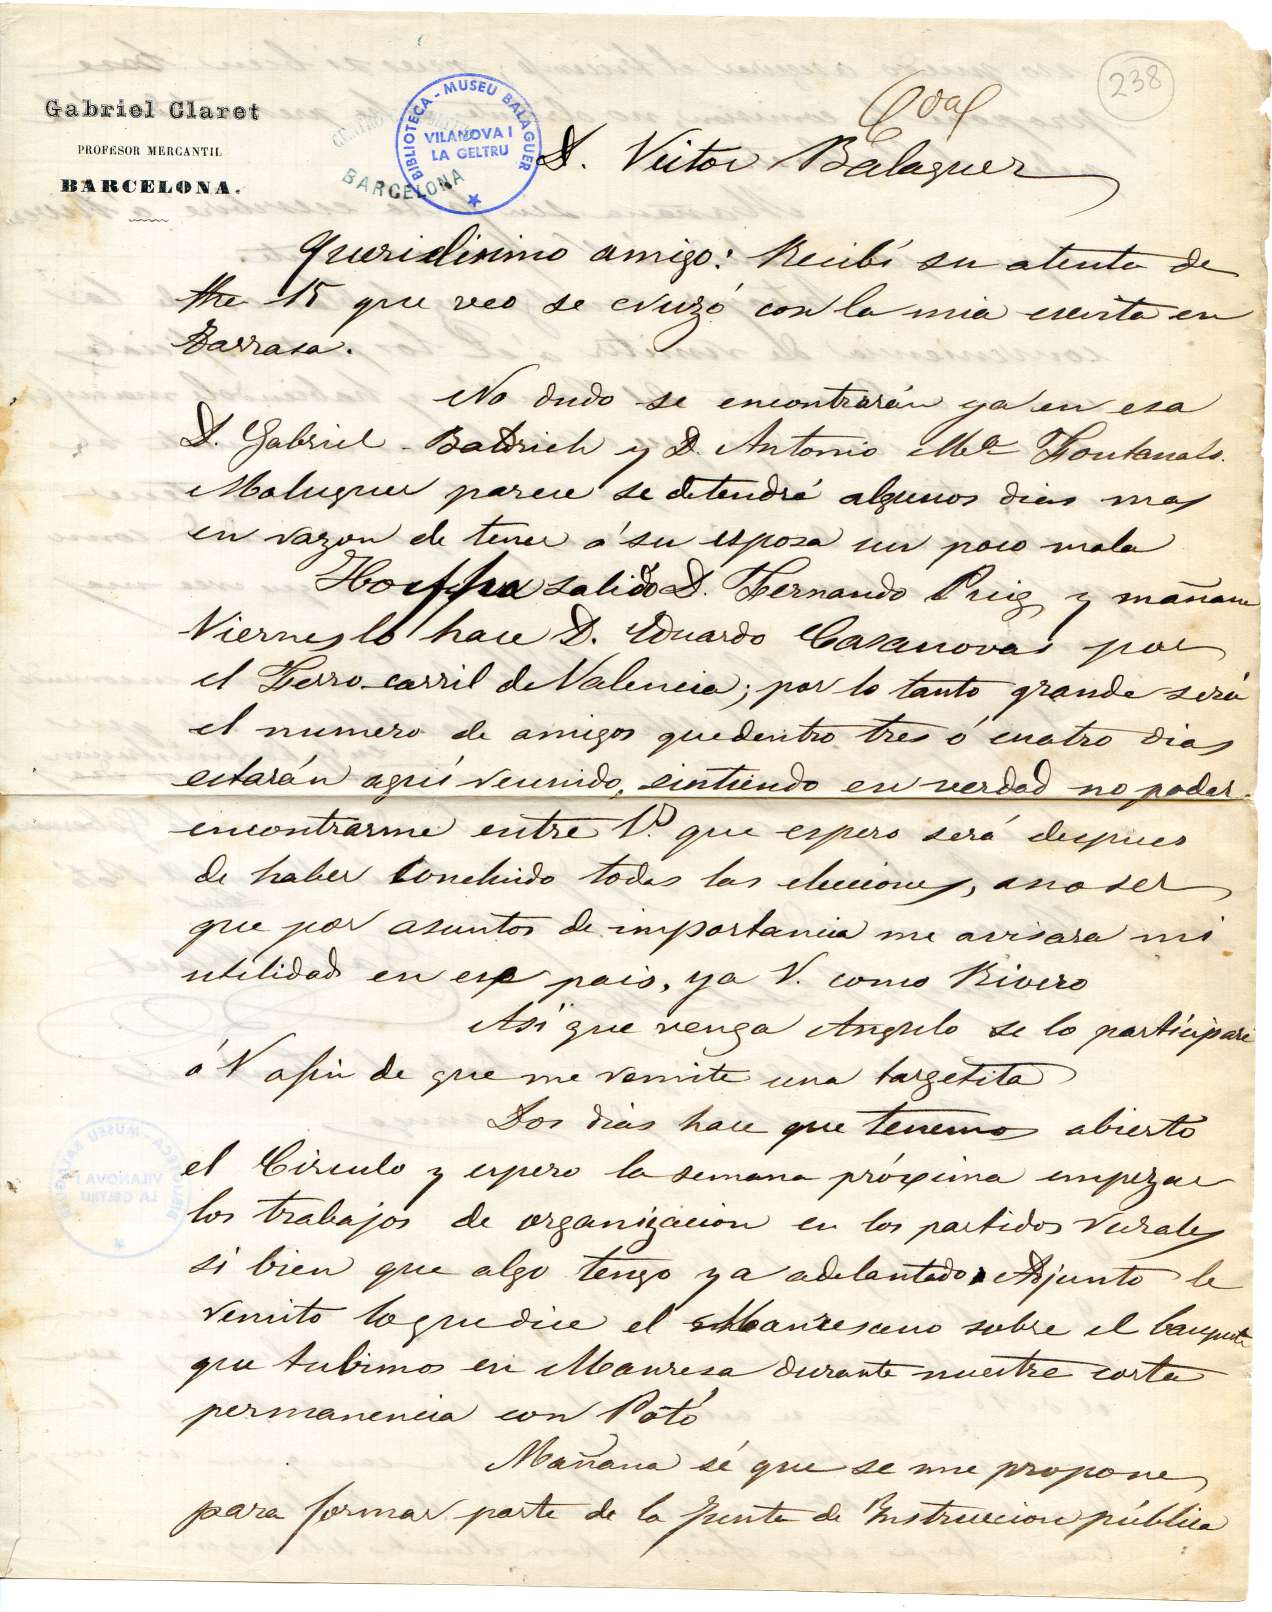 238
Gabriel Claret
PROFESOR MERCANTIL
BARCELONA.
BIBLIOTECA - MUSEU BALAGUER
VILANOVA I
LA GELTRU
BARCELONA
D. Victor Balaguer
Queridisimo amigo: Recibí su atenta de
15 que veo se cruzó con la mia escrita en
Tarrasa.
No dudo se encontrarán ya en esa
D. Gabriel Baldrich y D. Antonio Mª Fontanals.
Maluquer parece se detendrá algunos dias mas
en razon de tener á su esposa un poco mala
Hoy ha salido D. Fernando Puig y mañana
Viernes lo hace D. Eduardo Casanovas por
el Ferro-carril de Valencia; por lo tanto grande será
el numero de amigos que dentro tres ó cuatro dias
estarán aquí reunido, sintiendo en verdad no poder
encontrarme entre V. que espero será despues
de haber concluido todas las elecciones, a no ser
que por asuntos de importancia me avisara mi
utilidad en ese pais, ya V. como Rivero
Asi que venga Angulo se lo participaré
á V afin de que me remite una targetita
Dos dias hace que tenemos abierto
el Circulo y espero la semana próxima empezar
los trabajos de organizacion en los partidos rurales
si bien que algo tengo ya adelantado. Adjunto le
remito lo que dice el Manresano sobre el banquete
que tubimos en Manresa durante nuestre corta
permanencia con Pató
Mañana sé que se me propone
para formar parte de la Junta de Instruccion pública